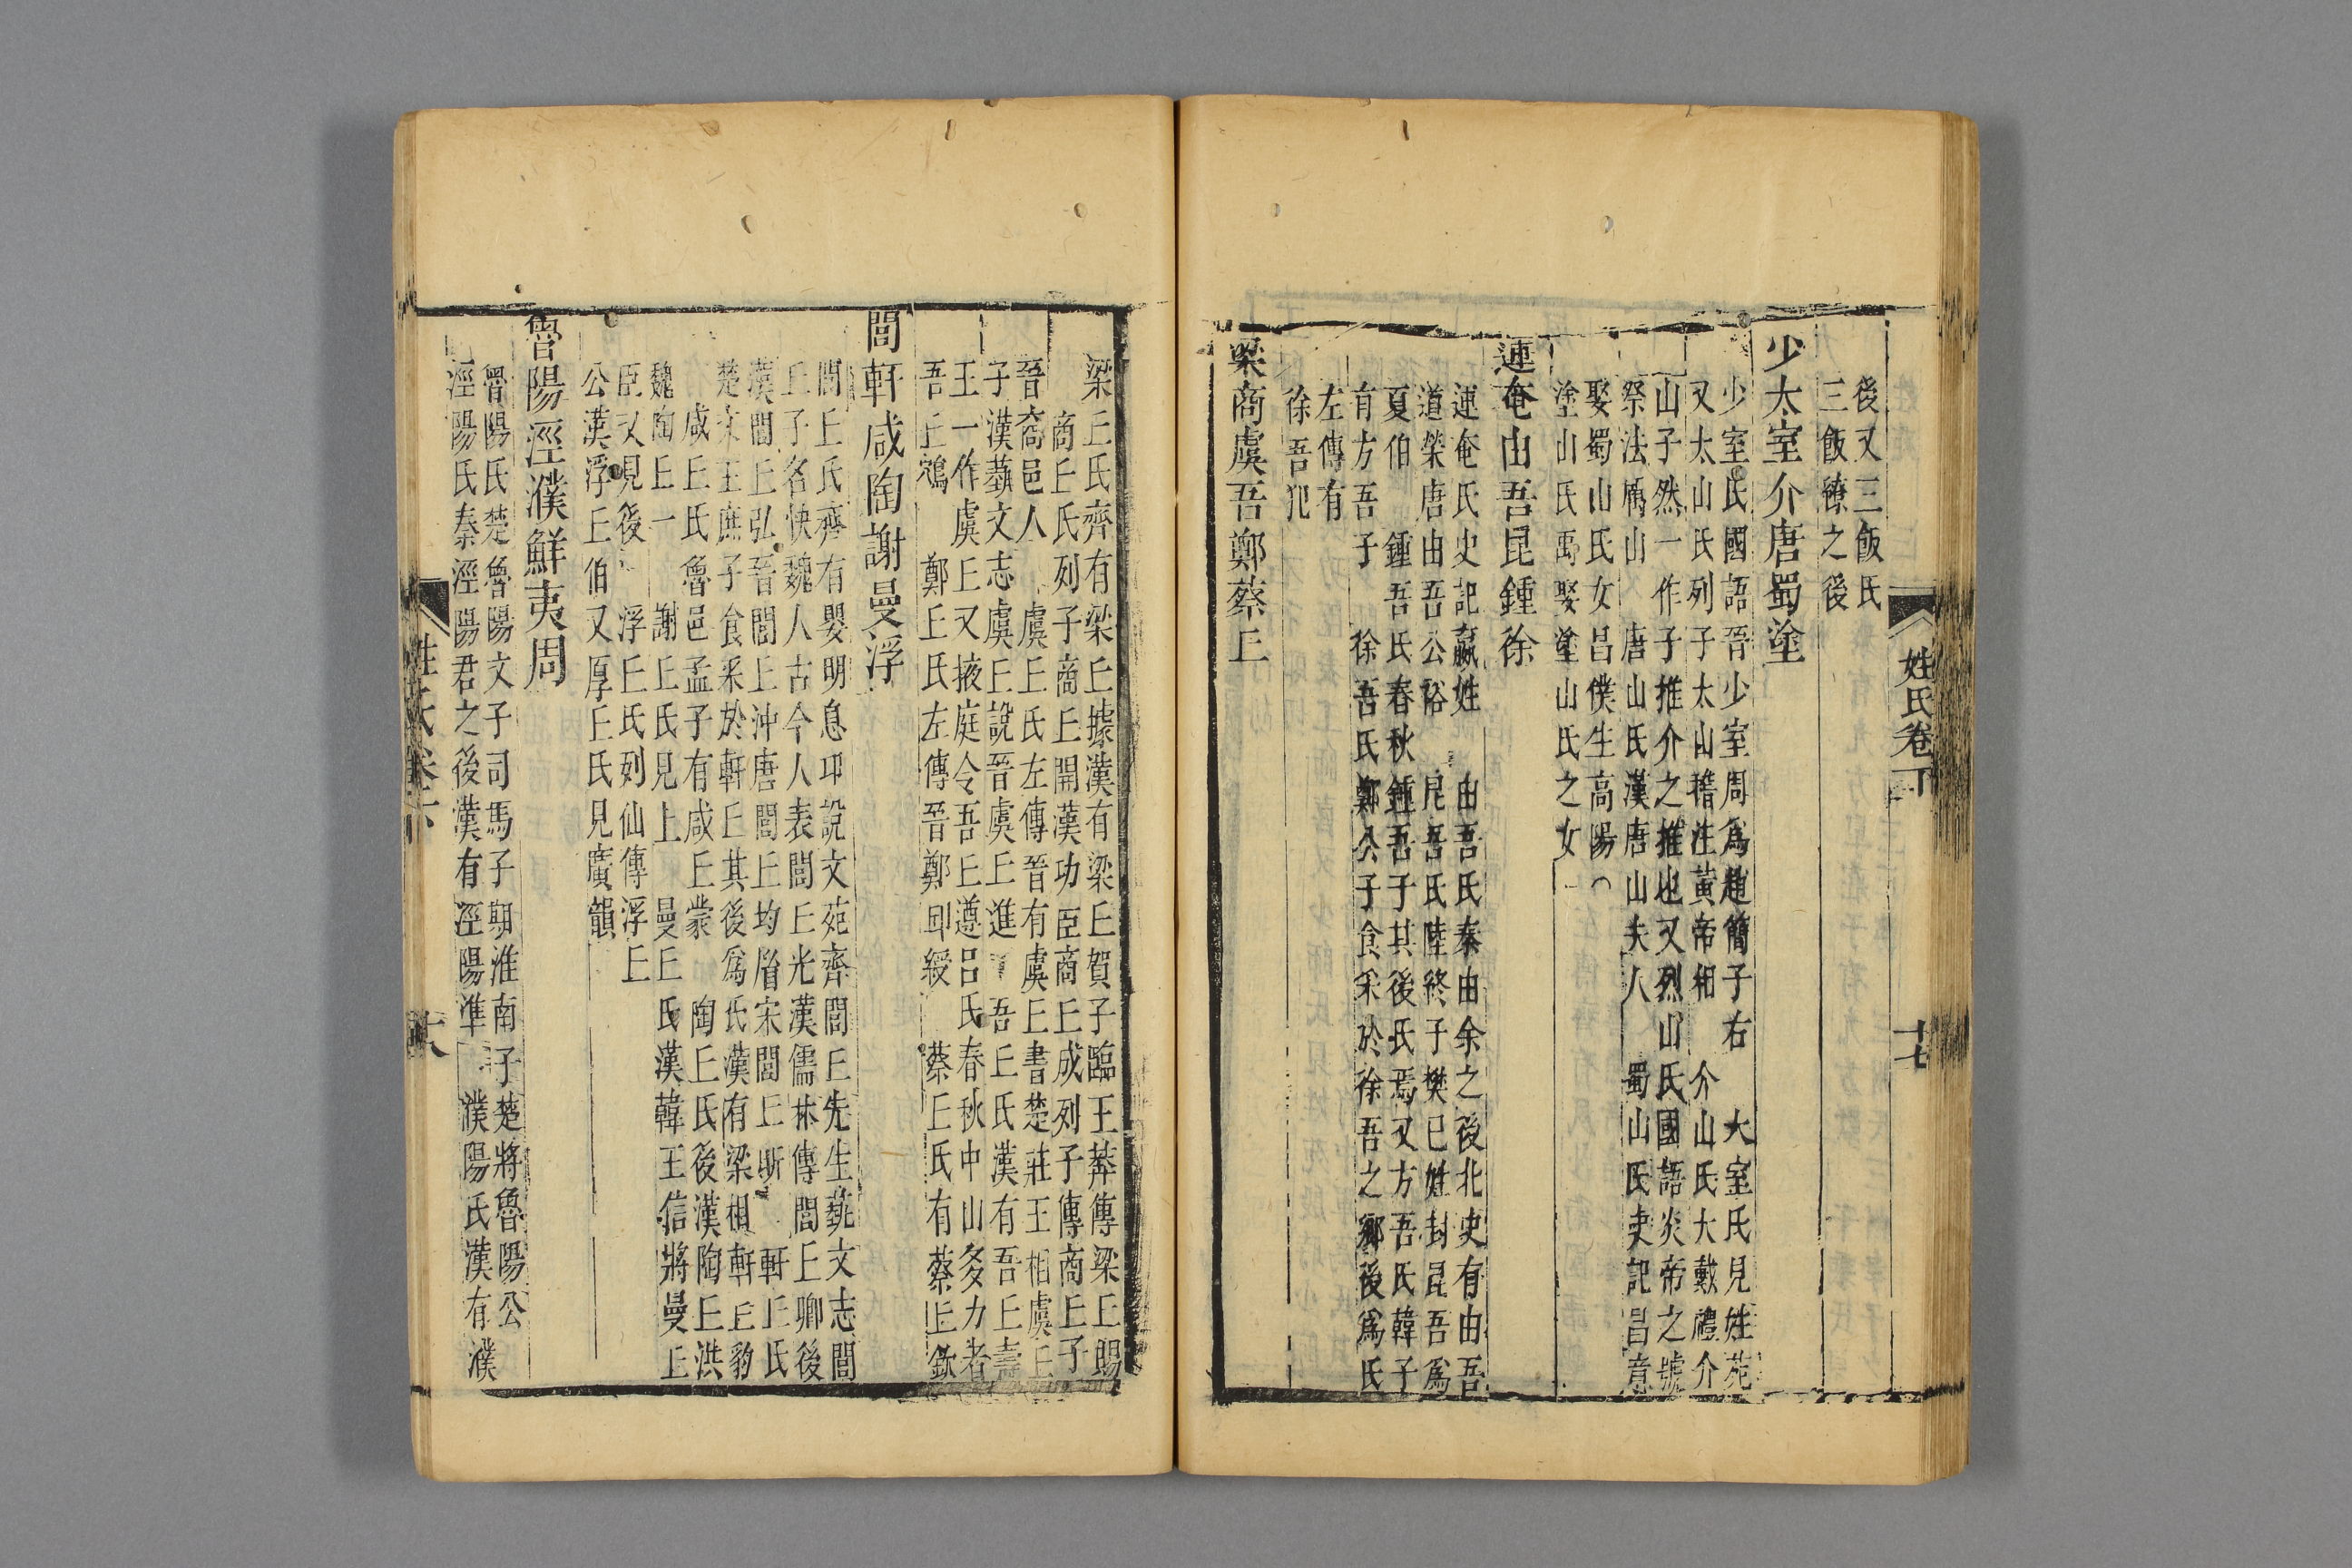 姓氏卷下
十七
後又三飯氏
三飯繚之後
少太室介唐蜀塗
少室氏國語晉少室周爲趙簡子右　大室氏見姓苑
又太山氏列子太山稽注黃帝相　介山氏大戴禮介
山子然一作子推介之推也又烈山氏國語炎帝之號
祭法厲山　唐山氏漢唐山夫人　蜀山氏史記昌意
娶蜀山氏女昌僕生高陽
塗山氏禹娶塗山氏之女
連奄由吾昆鍾徐
連奄氏史記嬴姓　由吾氏秦由余之後北史有由吾
道榮唐由吾公裕　昆吾氏陸終子樊巳姓封昆吾爲
夏伯　鍾吾氏春秋鍾吾子其後氏焉又方吾氏韓子
有方吾子　徐吾氏鄭公子食采於徐吾之鄉後爲氏
左傳有
徐吾犯
梁商虞吾鄭蔡丘
梁丘氏齊有梁丘據漢有梁丘賀子臨王莽傳梁丘賜
商丘氏列子商丘開漢功臣商丘成列子傳商丘子
晉裔邑人　虞丘氏左傳晉有虞丘書楚莊王相虞丘
子漢藝文志虞丘說晉虞丘進　吾丘氏漢有吾丘壽
王一作虞丘又掖庭令吾丘遵呂氏春秋中山多力者
吾丘鴆　鄭丘氏左傳晉鄭丘緩　蔡丘氏有蔡丘欽
閭軒咸陶謝曼浮
閭丘氏齊有嬰明息卭說文苑齊閭丘先生藝文志閭
丘子名快魏人古今人表閭丘光漢儒林傳閭丘卿後
漢閭丘弘晉閭丘沖唐閭丘均眉宋閭丘昕　軒丘氏
楚文王庶子食采於軒丘其後爲氏漢有梁相軒丘豹
咸丘氏魯邑孟子有咸丘蒙　陶丘氏後漢陶丘洪
魏陶丘一　謝丘氏見上　曼丘氏漢韓王信將曼丘
臣又見後　浮丘氏列仙傳浮丘
公漢浮丘伯又厚丘氏見廣韻
魯陽涇濮鮮夷周
魯陽氏楚魯陽文子司馬子期淮南子楚將魯陽公
涇陽氏秦涇陽君之後漢有涇陽準　濮陽氏漢有濮
姓氏卷下
十八